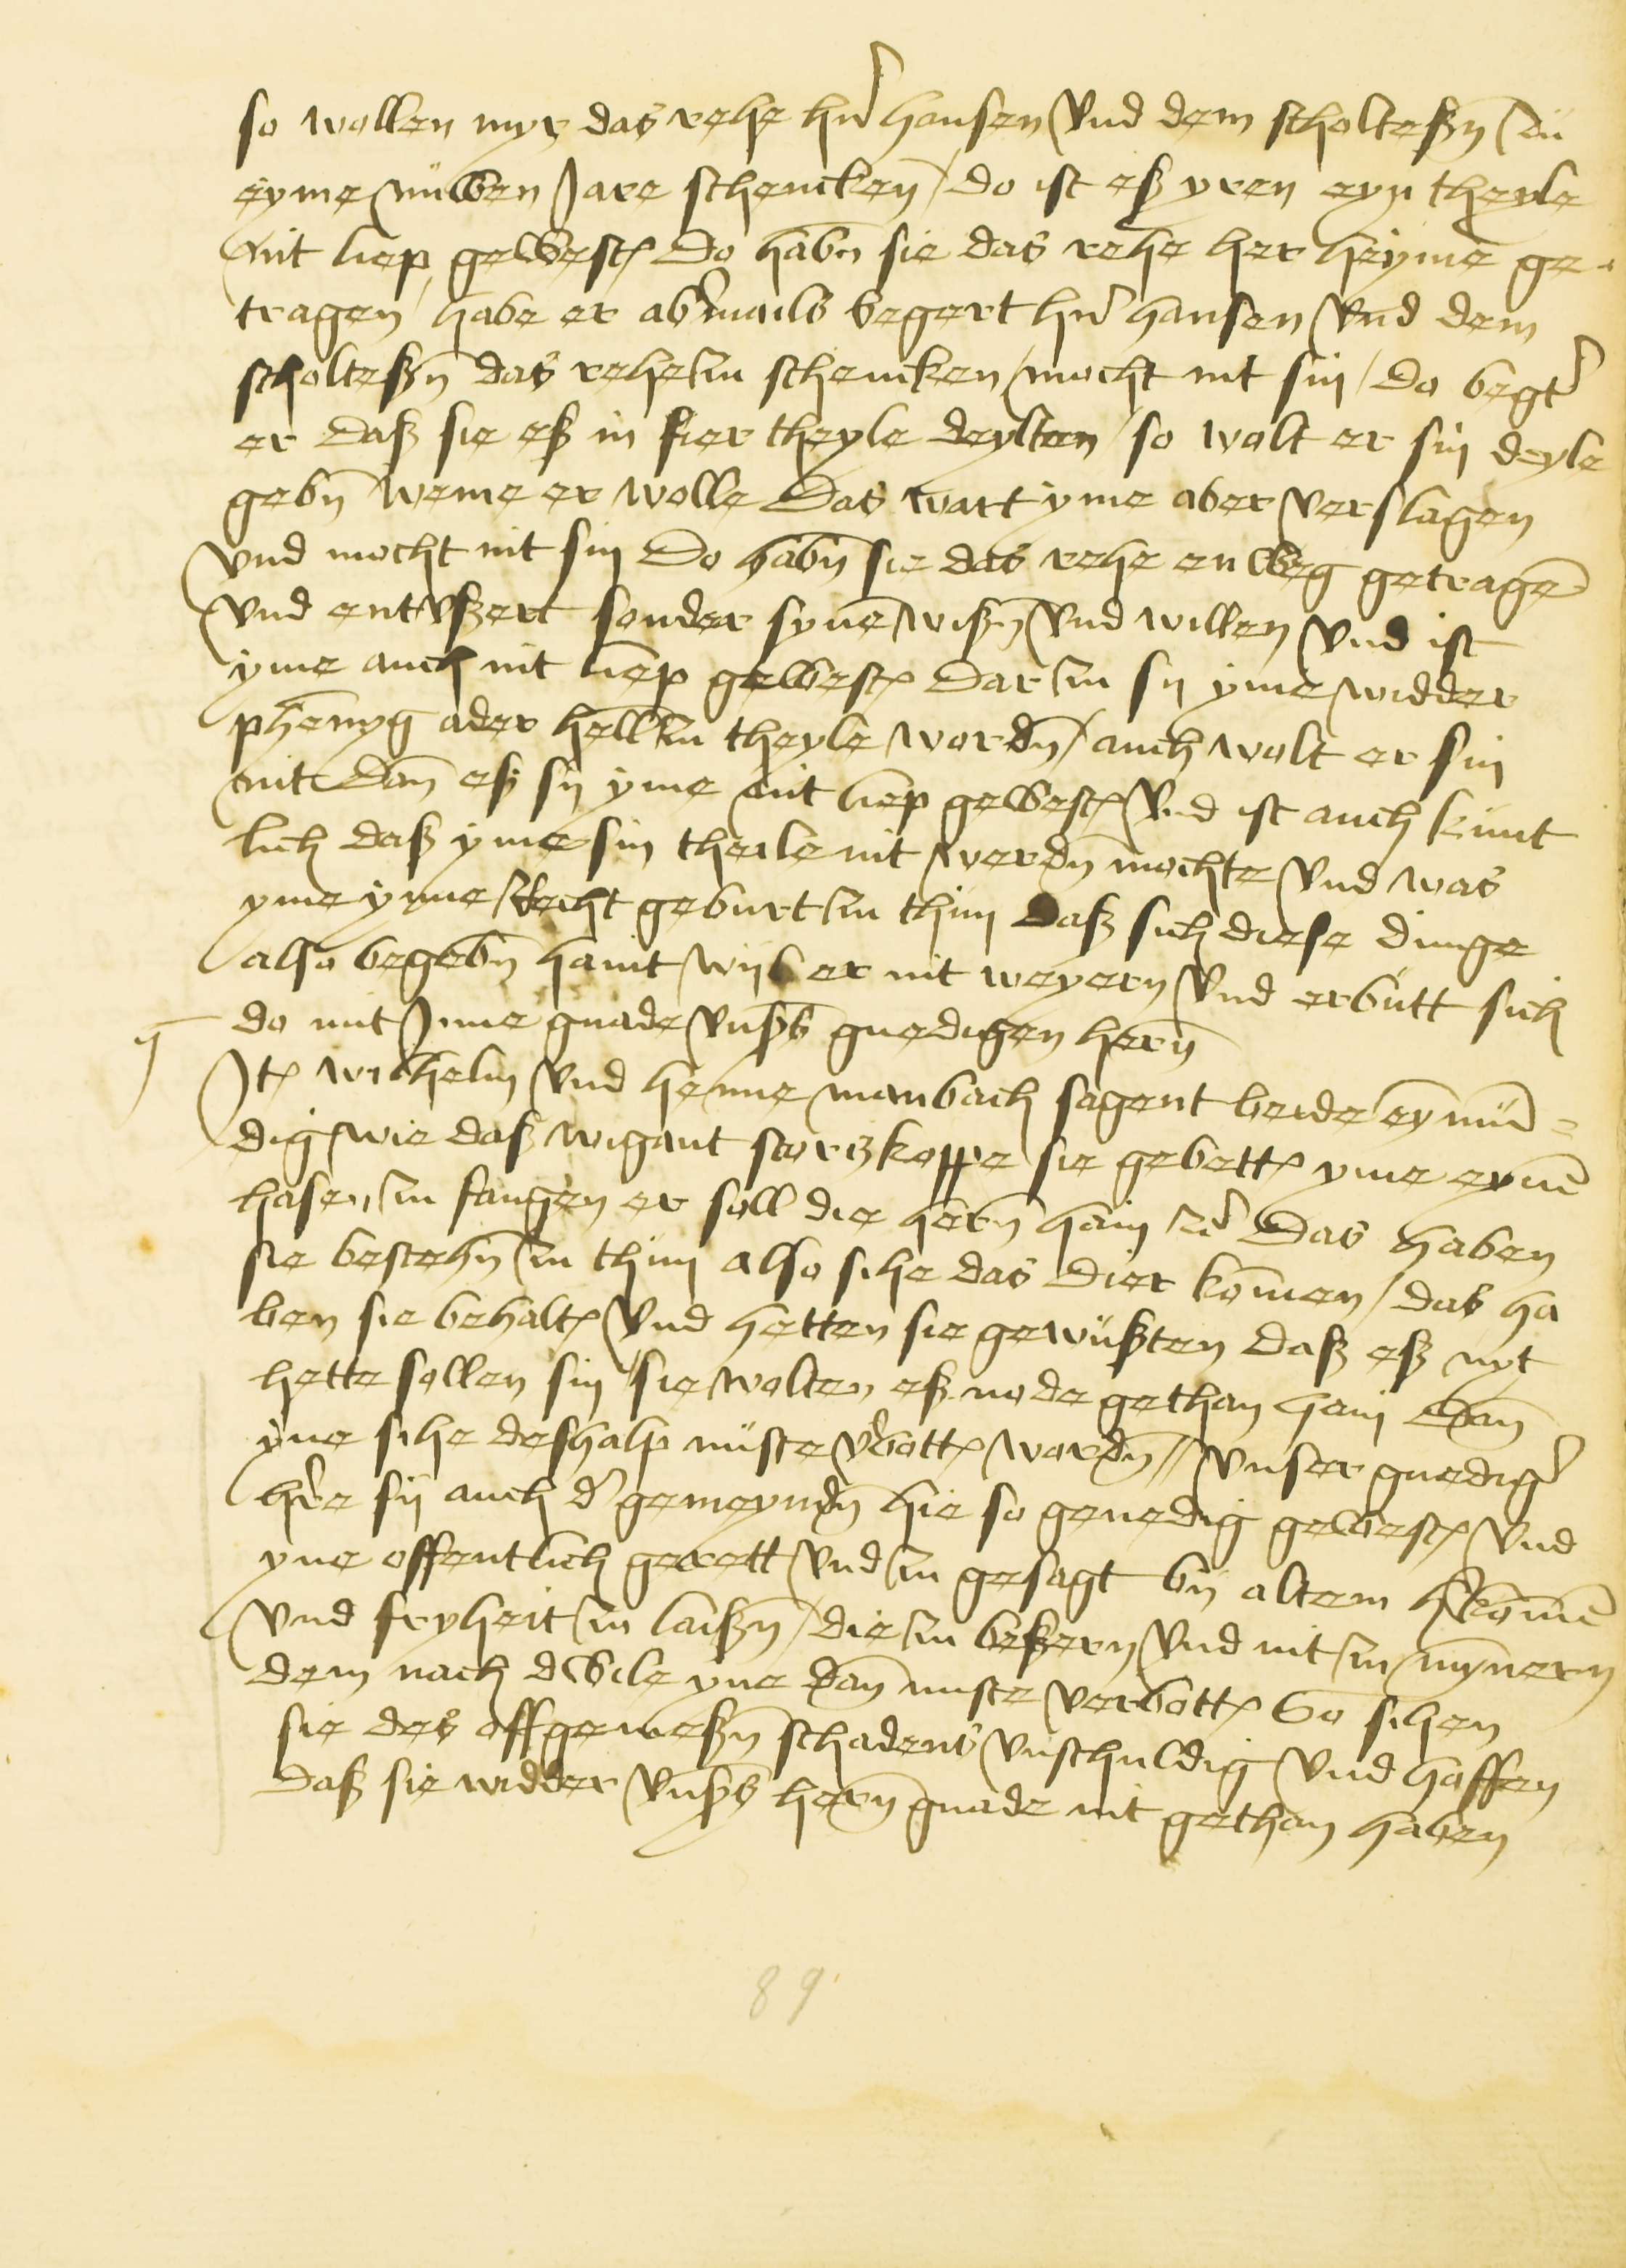 so wollen myr das rehe hern hansen vnd dem scholteßen zu
eyme nuwen Jare schencken / do ist eß yren eyn theyle
nit liep gewest Do haben sie das rehe her heyme ge-
tragen / habe er abermails begert hern hansen vnd dem
scholteßen das rehe zu schencken / mocht nit sin / do begert
er daß sie eß in fier theyle deylten / so wolt er sin deyle
geben weme er wolle Das wart yme aber verslagen
vnd mocht nit sin Do haben sie das rehe enweg getragen
vnd entußert sonder synen wißen vnd willen vnd ist
yme auch nit liep gewest Dar zu sy yme widder
phennyg ader heller zu theyle worden / auch wolt er sin
nit Dan eß sy yme nit liep gewest vnd ist auch kunt
lich daß yme sin theile nit werden mochte vnd was
yme yme Recht geburt zu thun Daß sich diese dinge
also begeben haint wyl er nit weyern vnd erbutt sich
do mit Jnne gnade vnsers gnedigen hern
Jtem wilhelm vnd henne manbach sagent beide eynmun=
dig wie daß wigant storczkoppe sie gebetten yme eynen
hasen zu fangen er soll die hern hain Das haben
sie bestehen zu thun also sihe das dier komen / das ha
ben sie behalten vnd hetten sie gewußten daß eß nyt
hette sollen sin / sie wolten eß node gethan hain Dan
yne sihe deshalp nuste verbotten worden // vnser gnediger
here sy auch der gemeynden hie so genedig gewest vnd
yne offentlich gerett vnd zu gesagt by altem herkomen
vnd fryheit zu laißen / die zu beßern vnd nit zu mynnern
dem nach dwile yne dan nuste verbotten so sihen
sie des offgeweßen schadens vnschuldig vnd hoffen
Daß sie widder vnsers hern gnade nit gethan haben
89